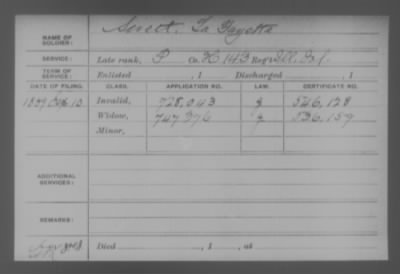 NAME OF SOLDIER: Swett, La Fayette
SERVICE: Late rank, P Co. H 143 Reg't Ill. Inf.
TERM OF SERVICE: Enlisted , 1 Discharged , 1
DATE OF FILING. CLASS. APPLICATION NO. LAW. CERTIFICATE NO.
1889 13 Invalid, 728,043 546,128
Widow, 747,376 536,159
Minor,
ADDITIONAL SERVICES:
REMARKS:
Died , 1 , at